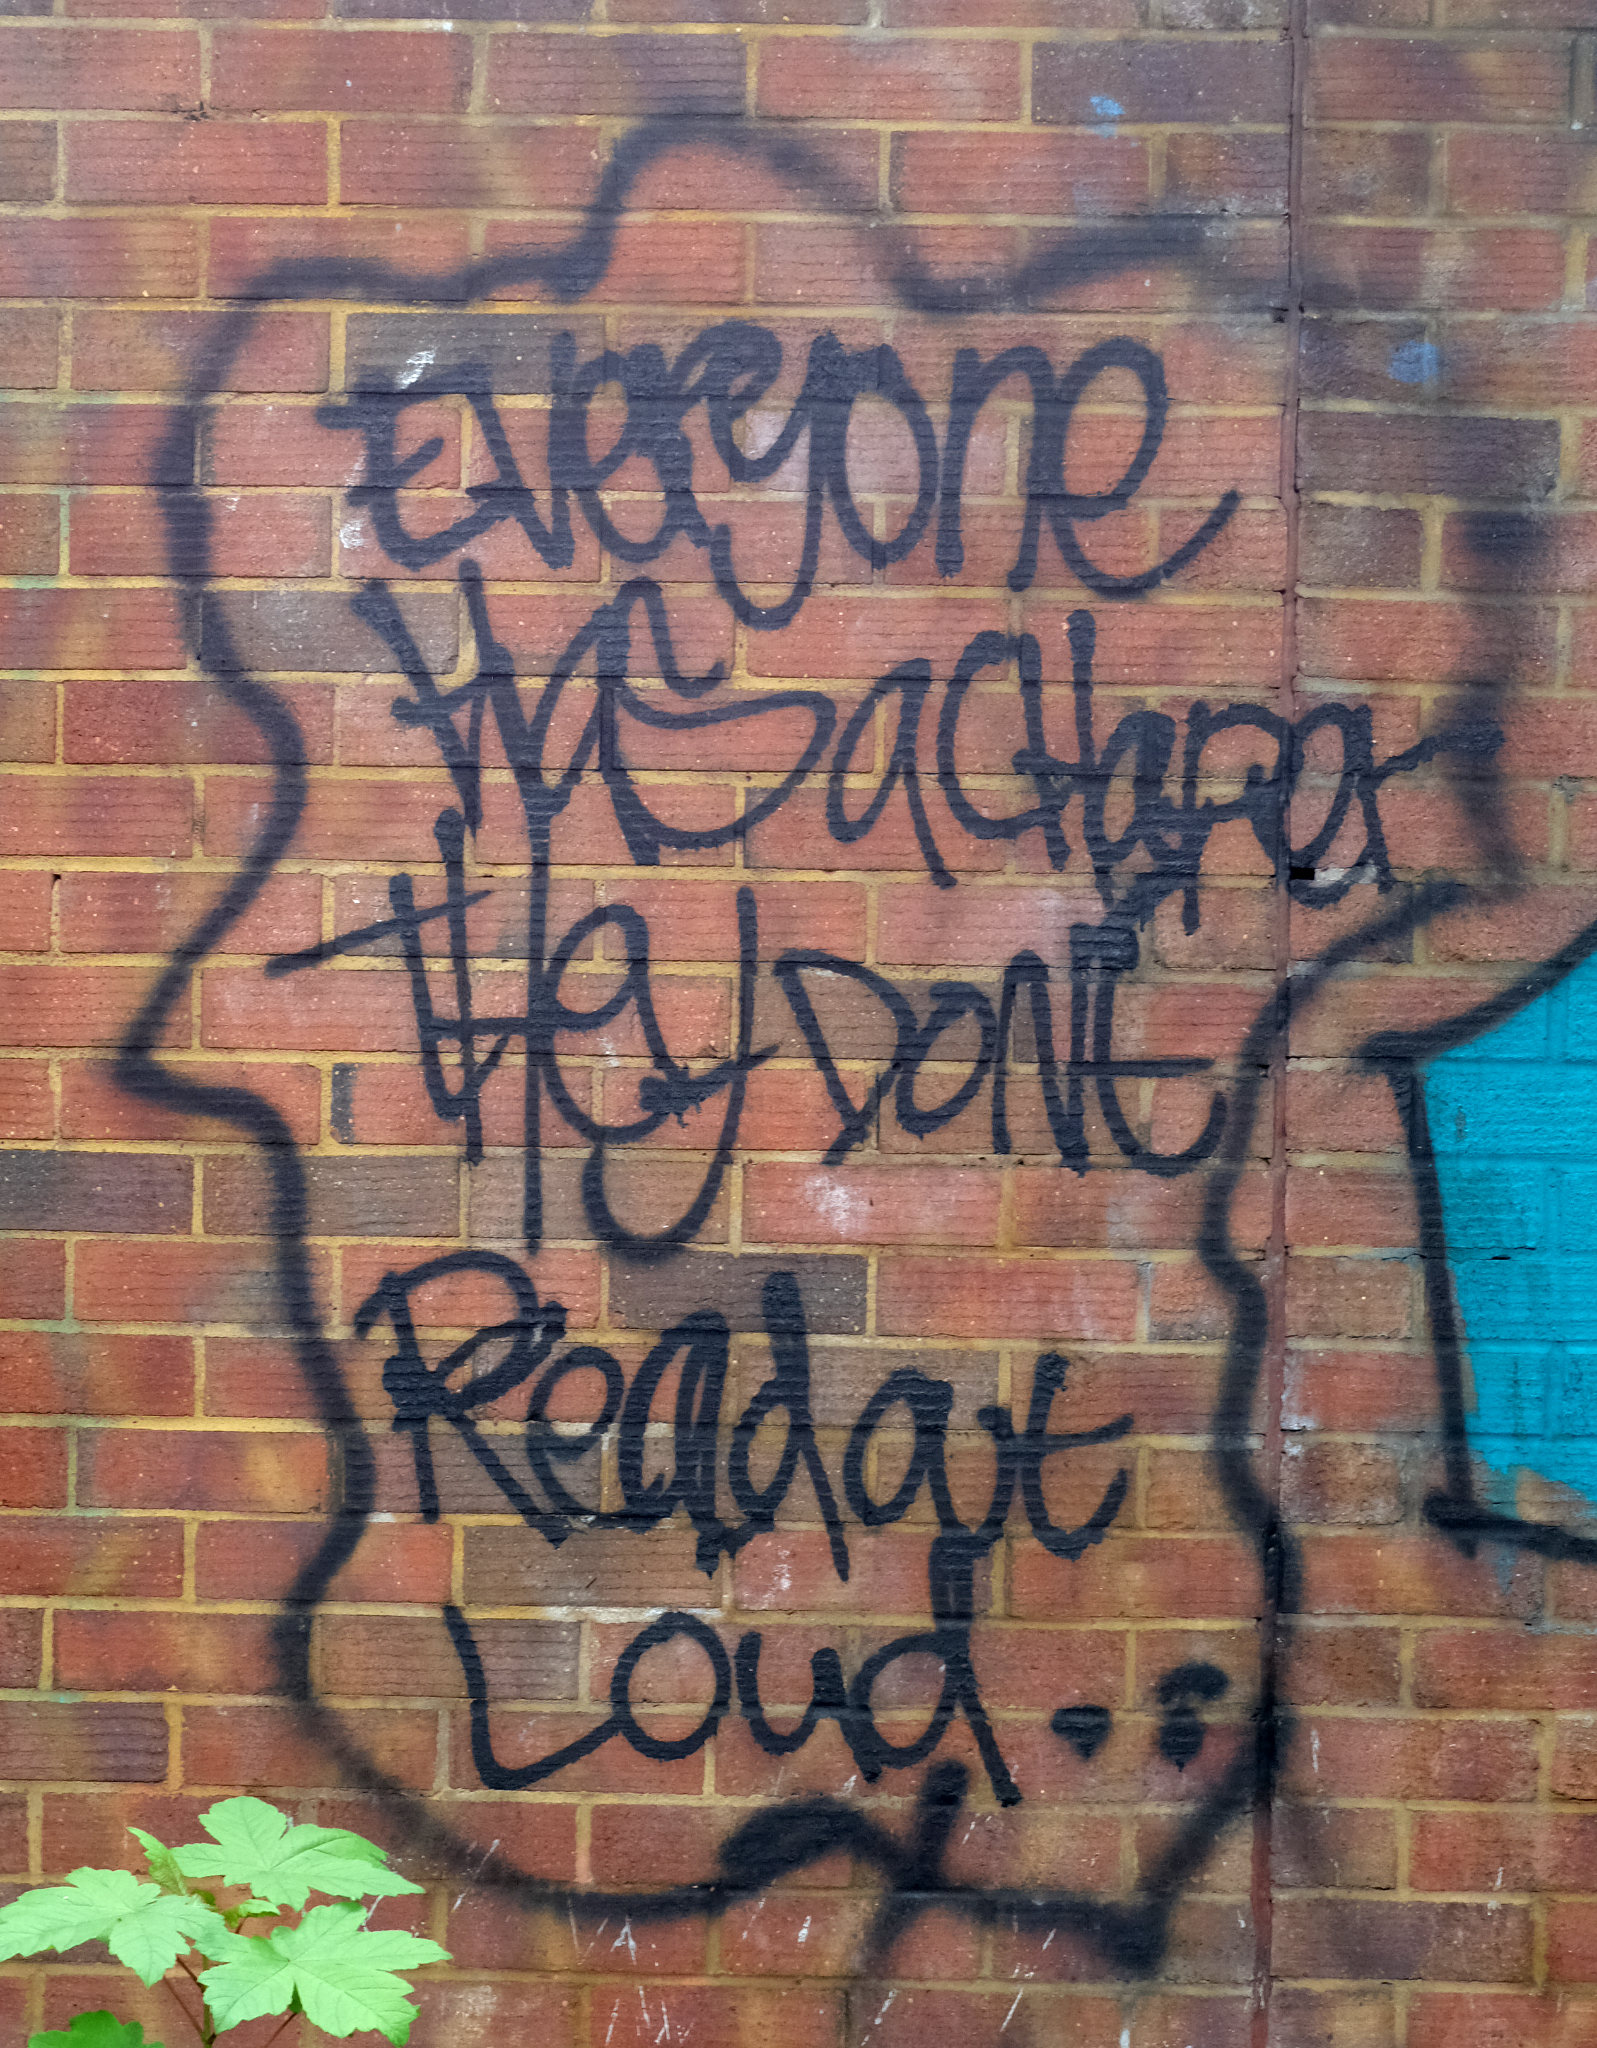 Everyone
Has a CHapter
tHey DONt
Read out
Loud..